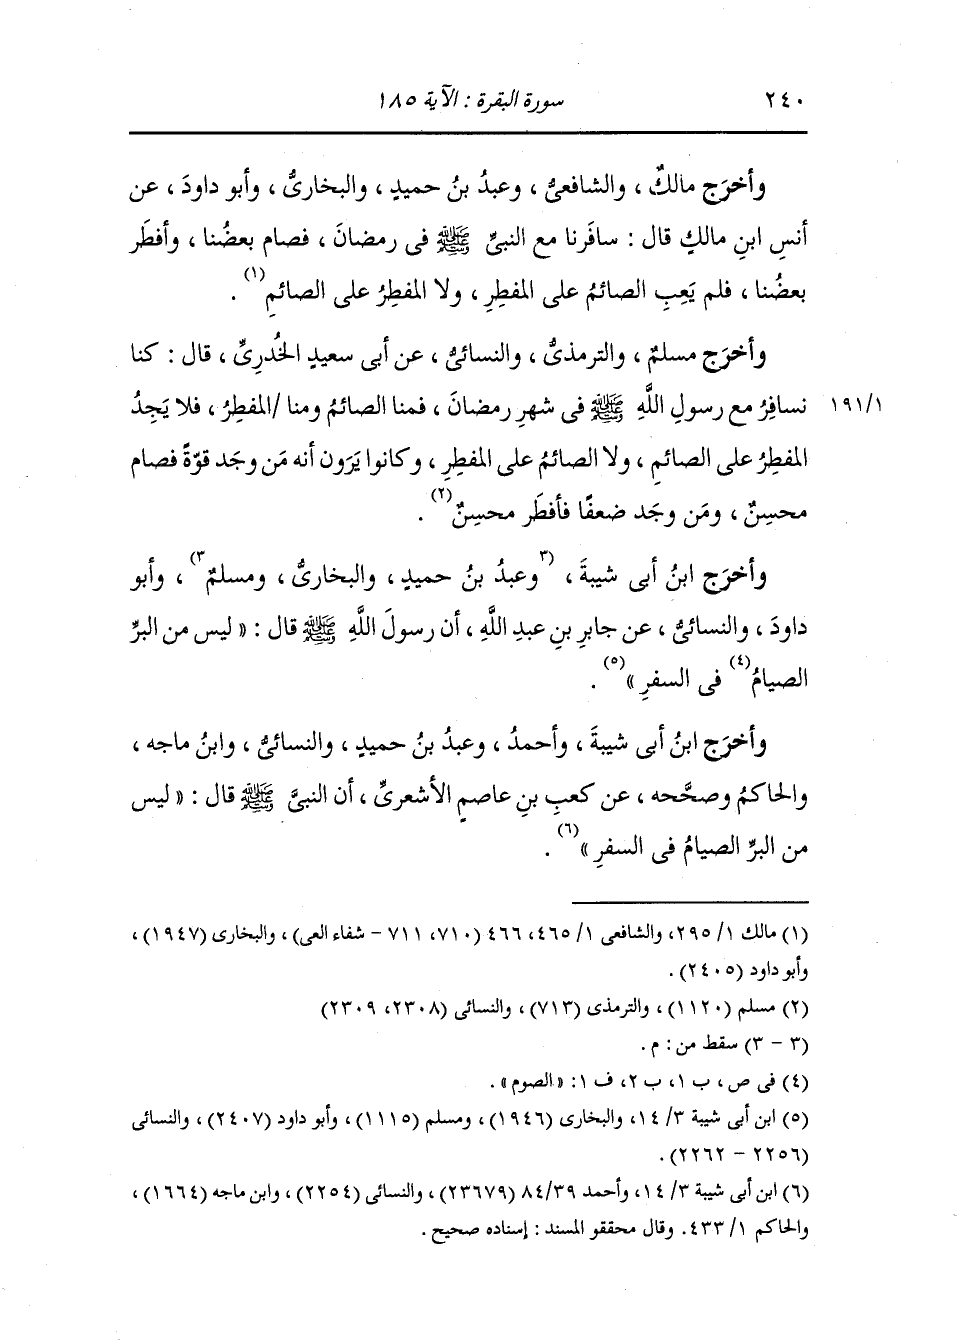 ٢٤٠ سورة البقرة : الآية ١٨٥
وأخرَج مالكٌ ، والشافعىُّ ، وعبدُ بنُ حميدٍ ، والبخارىُّ ، وأبو داودَ ، عن
أنسِ ابنِ مالكٍ قال : سافَرنا مع النبىِّ ﷺ فى رمضانَ ، فصام بعضُنا ، وأفطَر
بعضُنا ، فلم يَعِبِ الصائمُ على المفطِرِ ، ولا المفطِرُ على الصائمِ(١) .
وأخرَج مسلمٌ ، والترمذىُّ ، والنسائىُّ ، عن أبى سعيدٍ الخُدرِىِّ ، قال : كنا
نسافِرُ مع رسولِ اللَّهِ ﷺ فى شهرِ رمضانَ ، فمنا الصائمُ ومنا /المفطِرُ ، فلا يَجِدُ ١٩١/١
المفطِرُ على الصائمِ ، ولا الصائمُ على المفطِرِ ، وكانوا يَرَون أنه مَن وجَد قوّةً فصام
محسِنٌ ، ومَن وجَد ضعفًا فأفطَر محسِنٌ(٢) .
وأخرَج ابنُ أبى شيبةَ ، (٣وعبدُ بنُ حميدٍ ، والبخارىُّ ، ومسلمٌ٣) ، وأبو
داودَ ، والنسائىُّ ، عن جابرِ بنِ عبدِ اللَّهِ ، أن رسولَ اللَّهِ ﷺ قال : « ليس من البرِّ
الصيامُ(٤) فى السفرِ »(٥) .
وأخرَج ابنُ أبى شيبةَ ، وأحمدُ ، وعبدُ بنُ حميدٍ ، والنسائىُّ ، وابنُ ماجه ،
والحاكمُ وصحَّحه ، عن كعبِ بنِ عاصمٍ الأشعرىِّ ، أن النبىَّ ﷺ قال : « ليس
من البرِّ الصيامُ فى السفرِ »(٦) .
(١) مالك ١/ ٢٩٥، والشافعى ١/ ٤٦٥، ٤٦٦ (٧١٠، ٧١١ - شفاء العى)، والبخارى (١٩٤٧)،
وأبو داود (٢٤٠٥) .
(٢) مسلم (١١٢٠)، والترمذى (٧١٣)، والنسائى (٢٣٠٨، ٢٣٠٩)
(٣ - ٣) سقط من : م .
(٤) فى ص، ب ١، ب ٢، ف ١: «الصوم» .
(٥) ابن أبى شيبة ٣/ ١٤، والبخارى (١٩٤٦)، ومسلم (١١١٥)، وأبو داود (٢٤٠٧)، والنسائى
(٢٢٥٦ - ٢٢٦٢) .
(٦) ابن أبى شيبة ٣/ ١٤، وأحمد ٨٤/٣٩ (٢٣٦٧٩)، والنسائى (٢٢٥٤)، وابن ماجه (١٦٦٤)،
والحاكم ١/ ٤٣٣. وقال محققو المسند : إسناده صحيح .